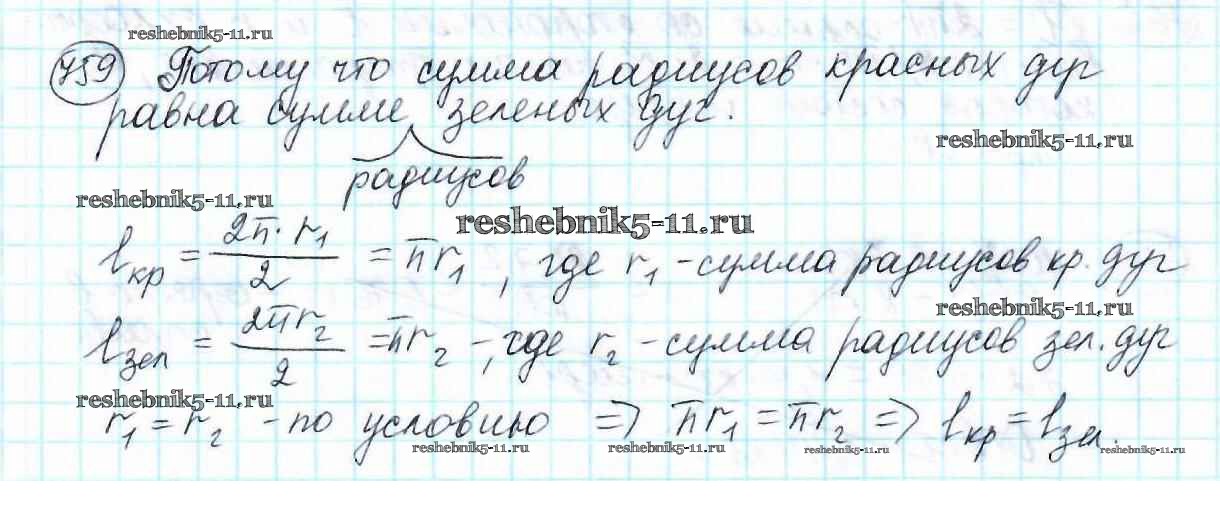 reshebnik5-11.ru
759 Потому что сумма радиусов красных дуг
равна сумме зеленых дуг.
reshebnik5-11.ru
радиусов
reshebnik5-11.ru
reshebnik5-11.ru
lкр = 2π·r₁/2 = πr₁, где r₁ - сумма радиусов кр. дуг
reshebnik5-11.ru
lзел = 2πr₂/2 = πr₂ -, где r₂ - сумма радиусов зел. дуг
reshebnik5-11.ru
r₁ = r₂ - по условию => πr₁ = πr₂ => lкр = lзел.
reshebnik5-11.ru reshebnik5-11.ru reshebnik5-11.ru reshebnik5-11.ru